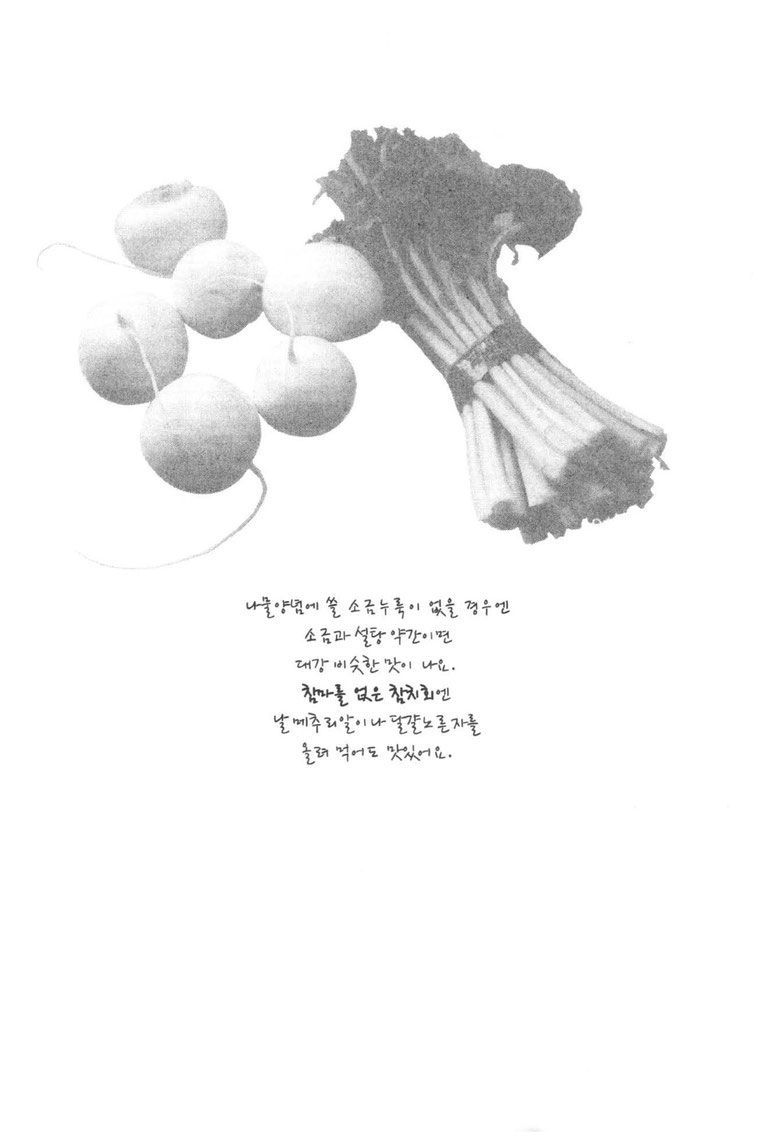 나물양념에 쓸 소금누룩이 없을 경우엔
소금과 설탕 약간이면
대강 비슷한 맛이 나요.
참마를 얹은 참치회엔
날메추리알이나 달걀노른자를
올려 먹어도 맛있어요.